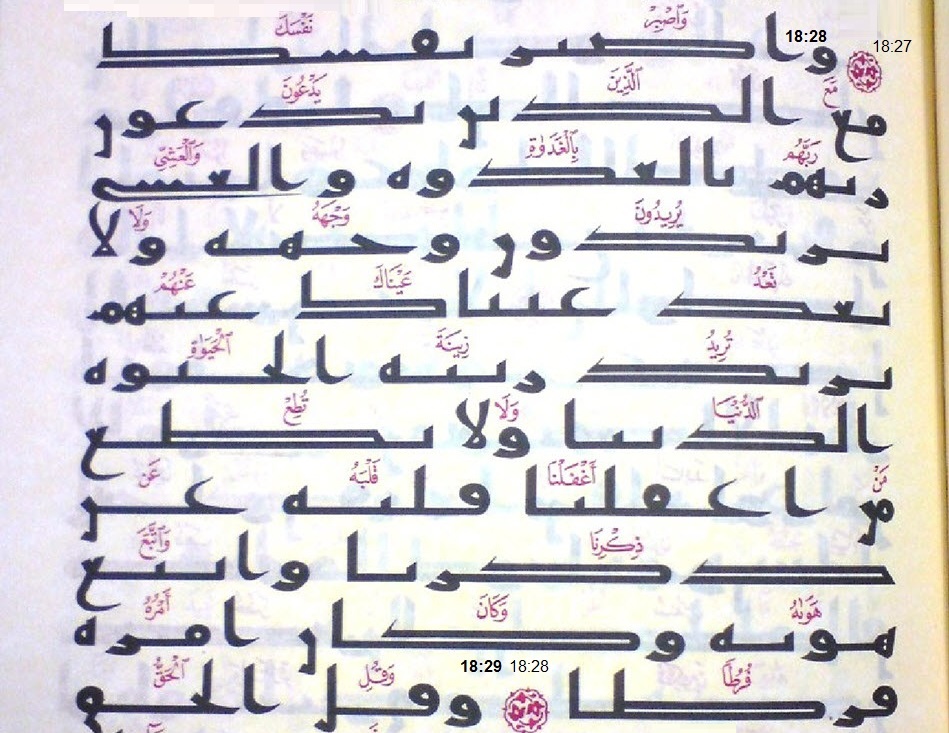 وَٱصْبِرْ نَفْسَكَ
18:27 18:28 واصبر نفسك
مَعَ ٱلَّذِينَ يَدْعُونَ
مع الذين يدعون
رَبَّهُم بِٱلْغَدَوٰةِ وَٱلْعَشِيِّ
ربهم بالغدوه والعشى
يُرِيدُونَ وَجْهَهُۥ وَلَا
يريدون وجهه ولا
تَعْدُ عَيْنَاكَ عَنْهُمْ
تعد عيناك عنهم
تُرِيدُ زِينَةَ ٱلْحَيَوٰةِ
تريد زينه الحيوه
ٱلدُّنْيَا وَلَا تُطِعْ
الدنيا ولا تطع
مَنْ أَغْفَلْنَا قَلْبَهُۥ عَن
من اغفلنا قلبه عن
ذِكْرِنَا وَٱتَّبَعَ
ذكرنا واتبع
هَوَىٰهُ وَكَانَ أَمْرُهُۥ
هويه وكان امره
18:28 18:29
فُرُطًا وَقُلِ ٱلْحَقُّ
فرطا وقل الحق